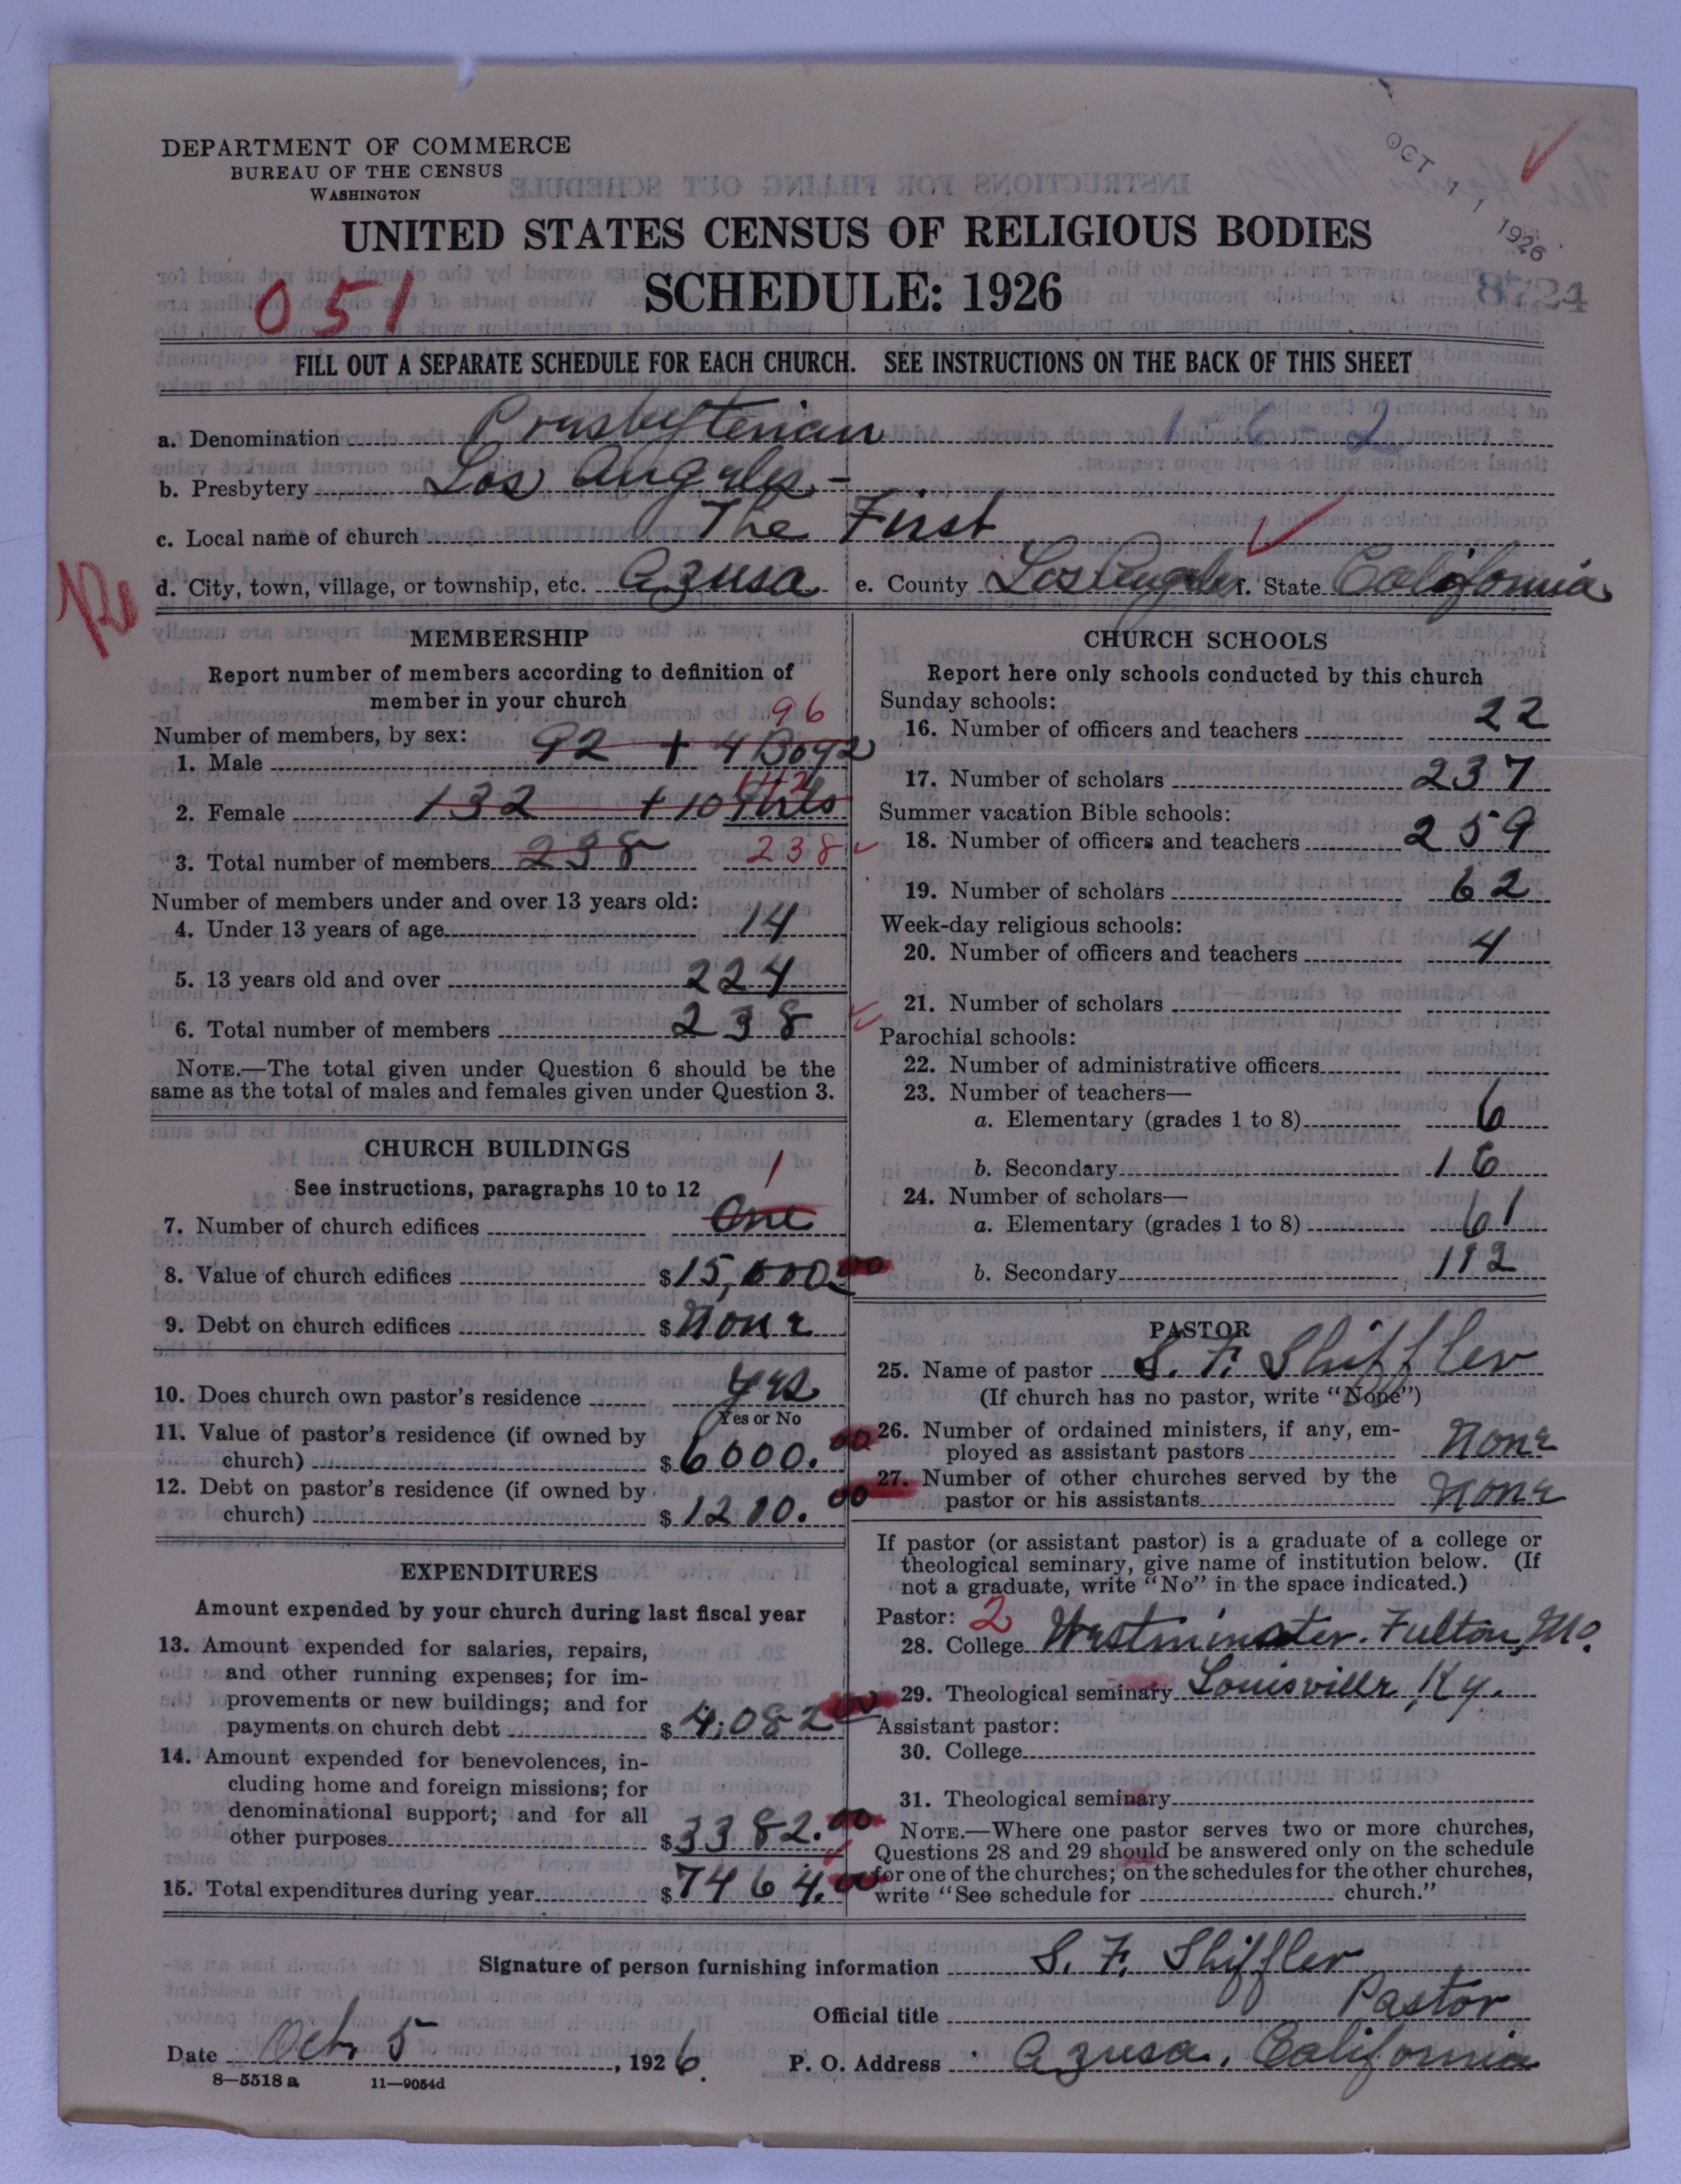 DEPARTMENT OF COMMERCE
BUREAU OF THE CENSUS
WASHINGTON
OCT 11 1926
UNITED STATES CENSUS OF RELIGIOUS BODIES
SCHEDULE: 1926
051
8724
FILL OUT A SEPARATE SCHEDULE FOR EACH CHURCH. SEE INSTRUCTIONS ON THE BACK OF THIS SHEET
a. Denomination Presbyterian 1-6-2
b. Presbytery Los Angeles -
c. Local name of church The First
d. City, town, village, or township, etc. Azusa e. County Los Angeles f. State California
MEMBERSHIP
Report number of members according to definition of
member in your church
Number of members, by sex: 96
1. Male 92 + 4 Boys
2. Female 132 + 10 Girls 142
3. Total number of members 238 238
Number of members under and over 13 years old:
4. Under 13 years of age 14
5. 13 years old and over 224
6. Total number of members 238
NOTE.—The total given under Question 6 should be the
same as the total of males and females given under Question 3.
CHURCH BUILDINGS
See instructions, paragraphs 10 to 12 1
7. Number of church edifices One
8. Value of church edifices $15,000.00
9. Debt on church edifices $None
10. Does church own pastor's residence yes
Yes or No
11. Value of pastor's residence (if owned by
church) $6000.00
12. Debt on pastor's residence (if owned by
church) $1200.00
EXPENDITURES
Amount expended by your church during last fiscal year
13. Amount expended for salaries, repairs,
and other running expenses; for im-
provements or new buildings; and for
payments on church debt $4,082 00
14. Amount expended for benevolences, in-
cluding home and foreign missions; for
denominational support; and for all
other purposes $3382.00
15. Total expenditures during year $7464.00
CHURCH SCHOOLS
Report here only schools conducted by this church
Sunday schools:
16. Number of officers and teachers 22
17. Number of scholars 237
Summer vacation Bible schools:
18. Number of officers and teachers 259
19. Number of scholars 62
Week-day religious schools:
20. Number of officers and teachers 4
21. Number of scholars
Parochial schools:
22. Number of administrative officers
23. Number of teachers—
a. Elementary (grades 1 to 8) 6
b. Secondary 16
24. Number of scholars—
a. Elementary (grades 1 to 8) 61
b. Secondary 112
PASTOR
25. Name of pastor S. F. Shiffler
(If church has no pastor, write "None")
26. Number of ordained ministers, if any, em-
ployed as assistant pastors None
27. Number of other churches served by the
pastor or his assistants None
If pastor (or assistant pastor) is a graduate of a college or
theological seminary, give name of institution below. (If
not a graduate, write "No" in the space indicated.)
Pastor: 2
28. College Westminster. Fulton, Mo.
29. Theological seminary Louisville, Ky.
Assistant pastor:
30. College
31. Theological seminary
NOTE.—Where one pastor serves two or more churches,
Questions 28 and 29 should be answered only on the schedule
for one of the churches; on the schedules for the other churches,
write "See schedule for church."
Signature of person furnishing information S. F. Shiffler
Official title Pastor
Date Oct. 5, 1926. P. O. Address Azusa, California
8—5518 a 11—9054d